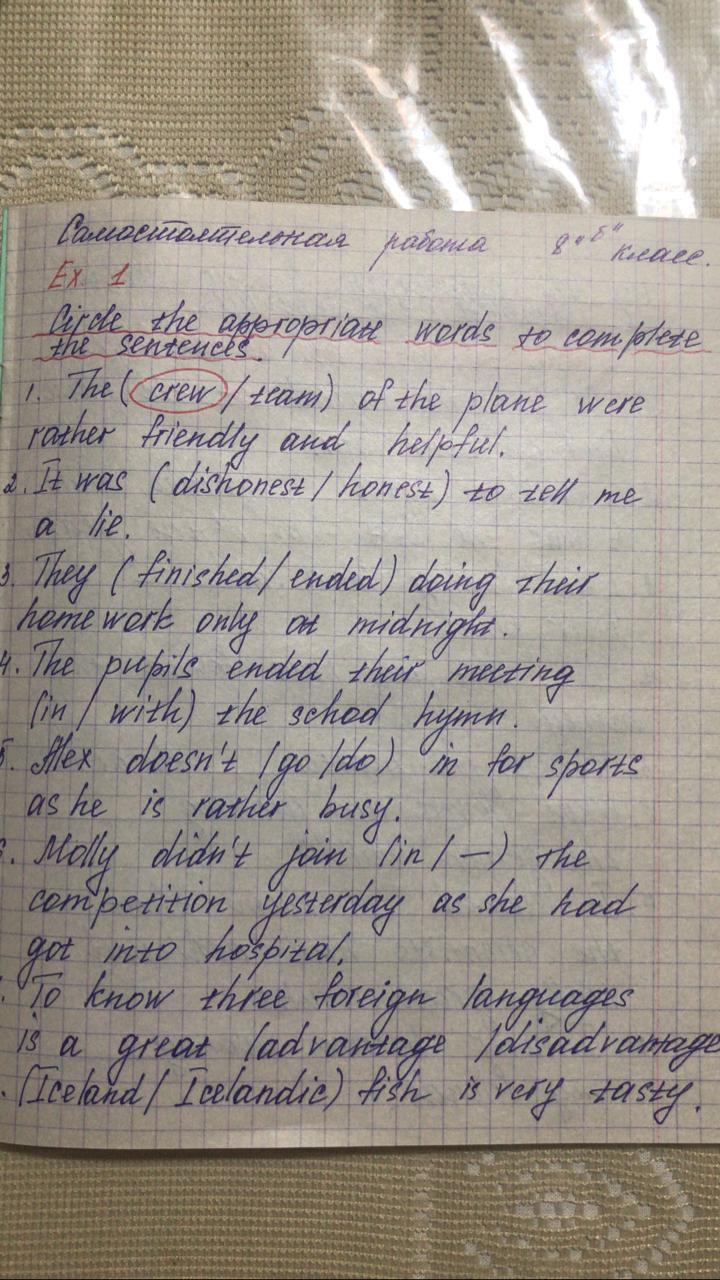 Самостоятельная работа 8 "б" класс.
Ex. 1
Circle the appropriate words to complete
the sentences.
1. The ( crew / team) of the plane were
rather friendly and helpful.
2. It was ( dishonest / honest) to tell me
a lie.
3. They ( finished / ended) doing their
homework only at midnight.
4. The pupils ended their meeting
(in / with) the school hymn.
5. Alex doesn't (go / do) in for sports
as he is rather busy.
6. Molly didn't join (in / —) the
competition yesterday as she had
got into hospital.
. To know three foreign languages
is a great (advantage / disadvantage
. (Iceland / Icelandic) fish is very tasty.